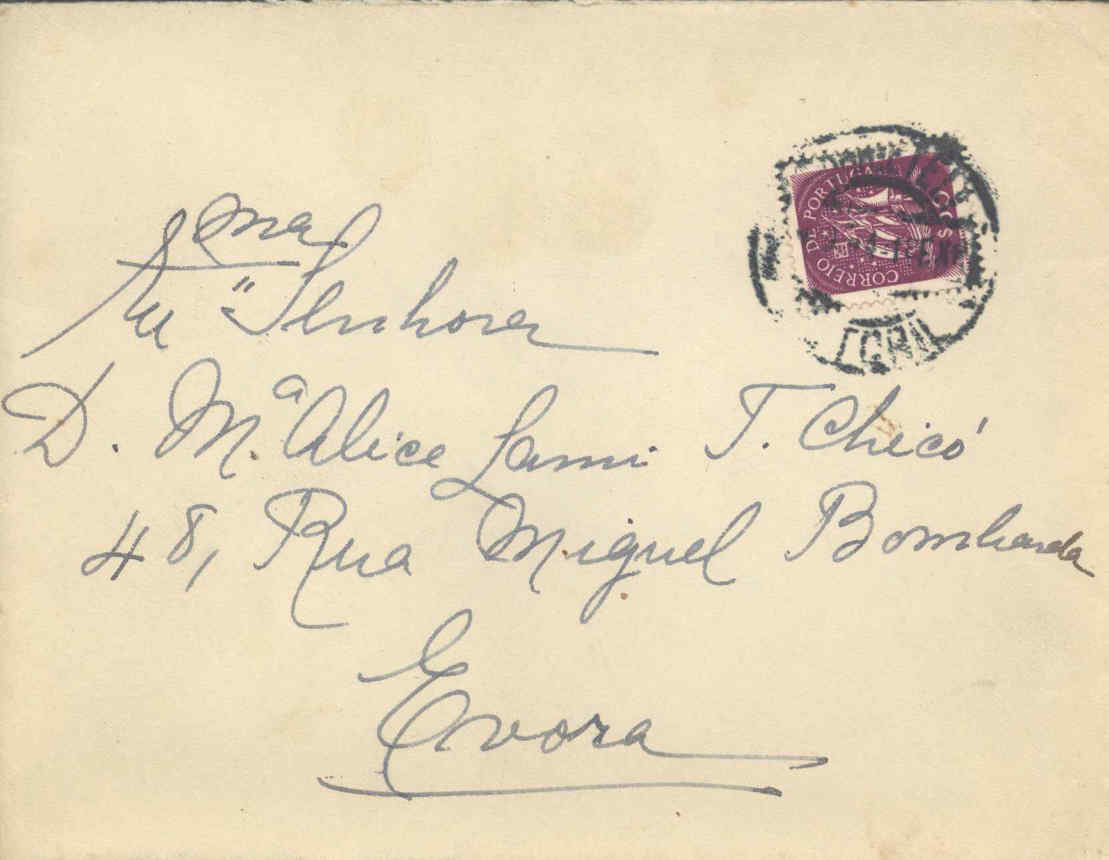 Exma
Sr.ª Senhora
D. M.ª Alice Lami T. Chicó
48, Rua Miguel Bombarda
Evora
CORREIO DE PORTUGAL